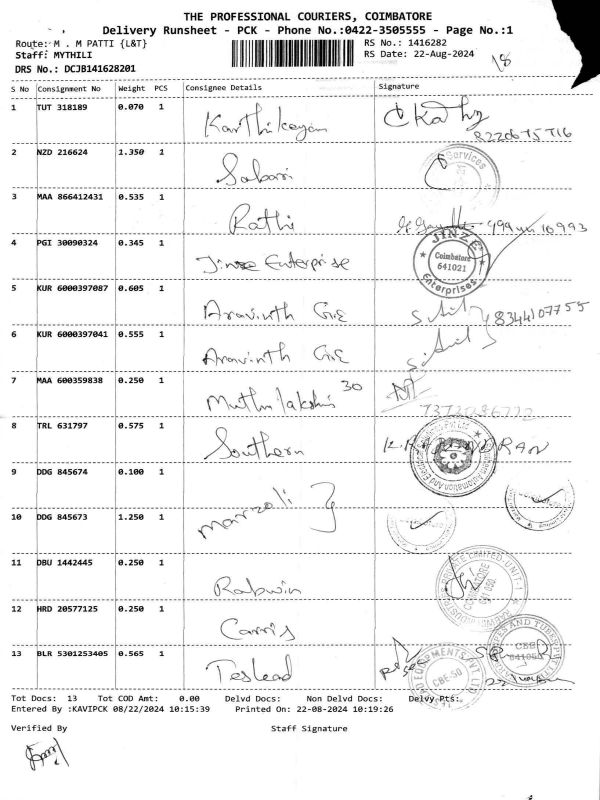 THE PROFESSIONAL COURIERS, COIMBATORE
Delivery Runsheet - PCK - Phone No.:0422-3505555 - Page No.:1
Route: M . M PATTI {L&T}
RS No.: 1416282
Staff: MYTHILI
RS Date: 22-Aug-2024
DRS No.: DCJB141628201
18
S No Consignment No Weight PCS Consignee Details Signature
1 TUT 318189 0.070 1 Karthikeyan
8220675716
2 NZD 216624 1.350 1 Sabari
Services
3 MAA 866412431 0.535 1 Rathi
4 PGI 30090324 0.345 1 Jinze Enterprise
JINZE
Coimbatore
641021
Enterprises
5 KUR 6000397087 0.605 1 Aravinth GNE
8344107755
6 KUR 6000397041 0.555 1 Aravinth GNE
7 MAA 600359838 0.250 1 Muthulakshmi 30
8 TRL 631797 0.575 1 Southern
9 DDG 845674 0.100 1
10 DDG 845673 1.250 1 Marzoli
11 DBU 1442445 0.250 1 Rabwin
COIMBATORE
12 HRD 20577125 0.250 1 Carris
13 BLR 5301253405 0.565 1 Teslead
CBE-50
Tot Docs: 13 Tot COD Amt: 0.00 Delvd Docs: Non Delvd Docs: Delvy Pts:
Entered By :KAVIPCK 08/22/2024 10:15:39 Printed On: 22-08-2024 10:19:26
Verified By
Staff Signature